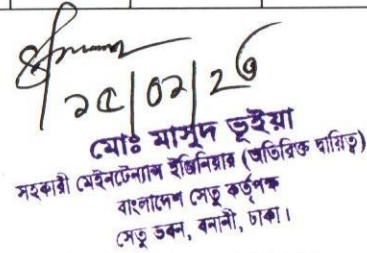 ২৫|০২|২৬
মোঃ মাসুদ ভূইয়া
সহকারী মেইনটেন্যান্স ইঞ্জিনিয়ার (অতিরিক্ত দায়িত্ব)
বাংলাদেশ সেতু কর্তৃপক্ষ
সেতু ভবন, বনানী, ঢাকা।